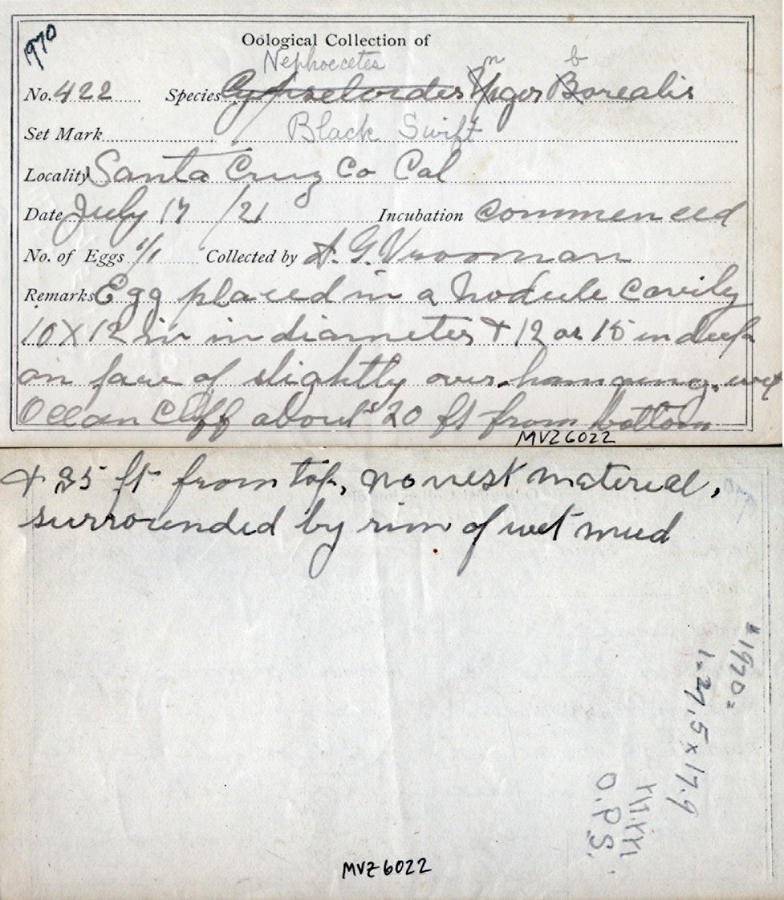 1970
Oölogical Collection of
Nephoecetes n b
No. 422 Species Cypseloides Niger Borealis
Set Mark Black Swift
Locality Santa Cruz Co Cal
Date July 17 /21 Incubation commenced
No. of Eggs 1/1 Collected by A. G. Vrooman
Remarks Egg placed in a nodule cavity
10 X 12 in in diameter & 12 or 15 in deep
on face of slightly over-hanging, wet
Ocean Cliff about 20 ft from bottom
MVZ6022
& 35 ft from top, no nest material,
surrounded by rim of wet mud
#1970=
1-27.5 x 17.9
O.P.S.
MVZ6022